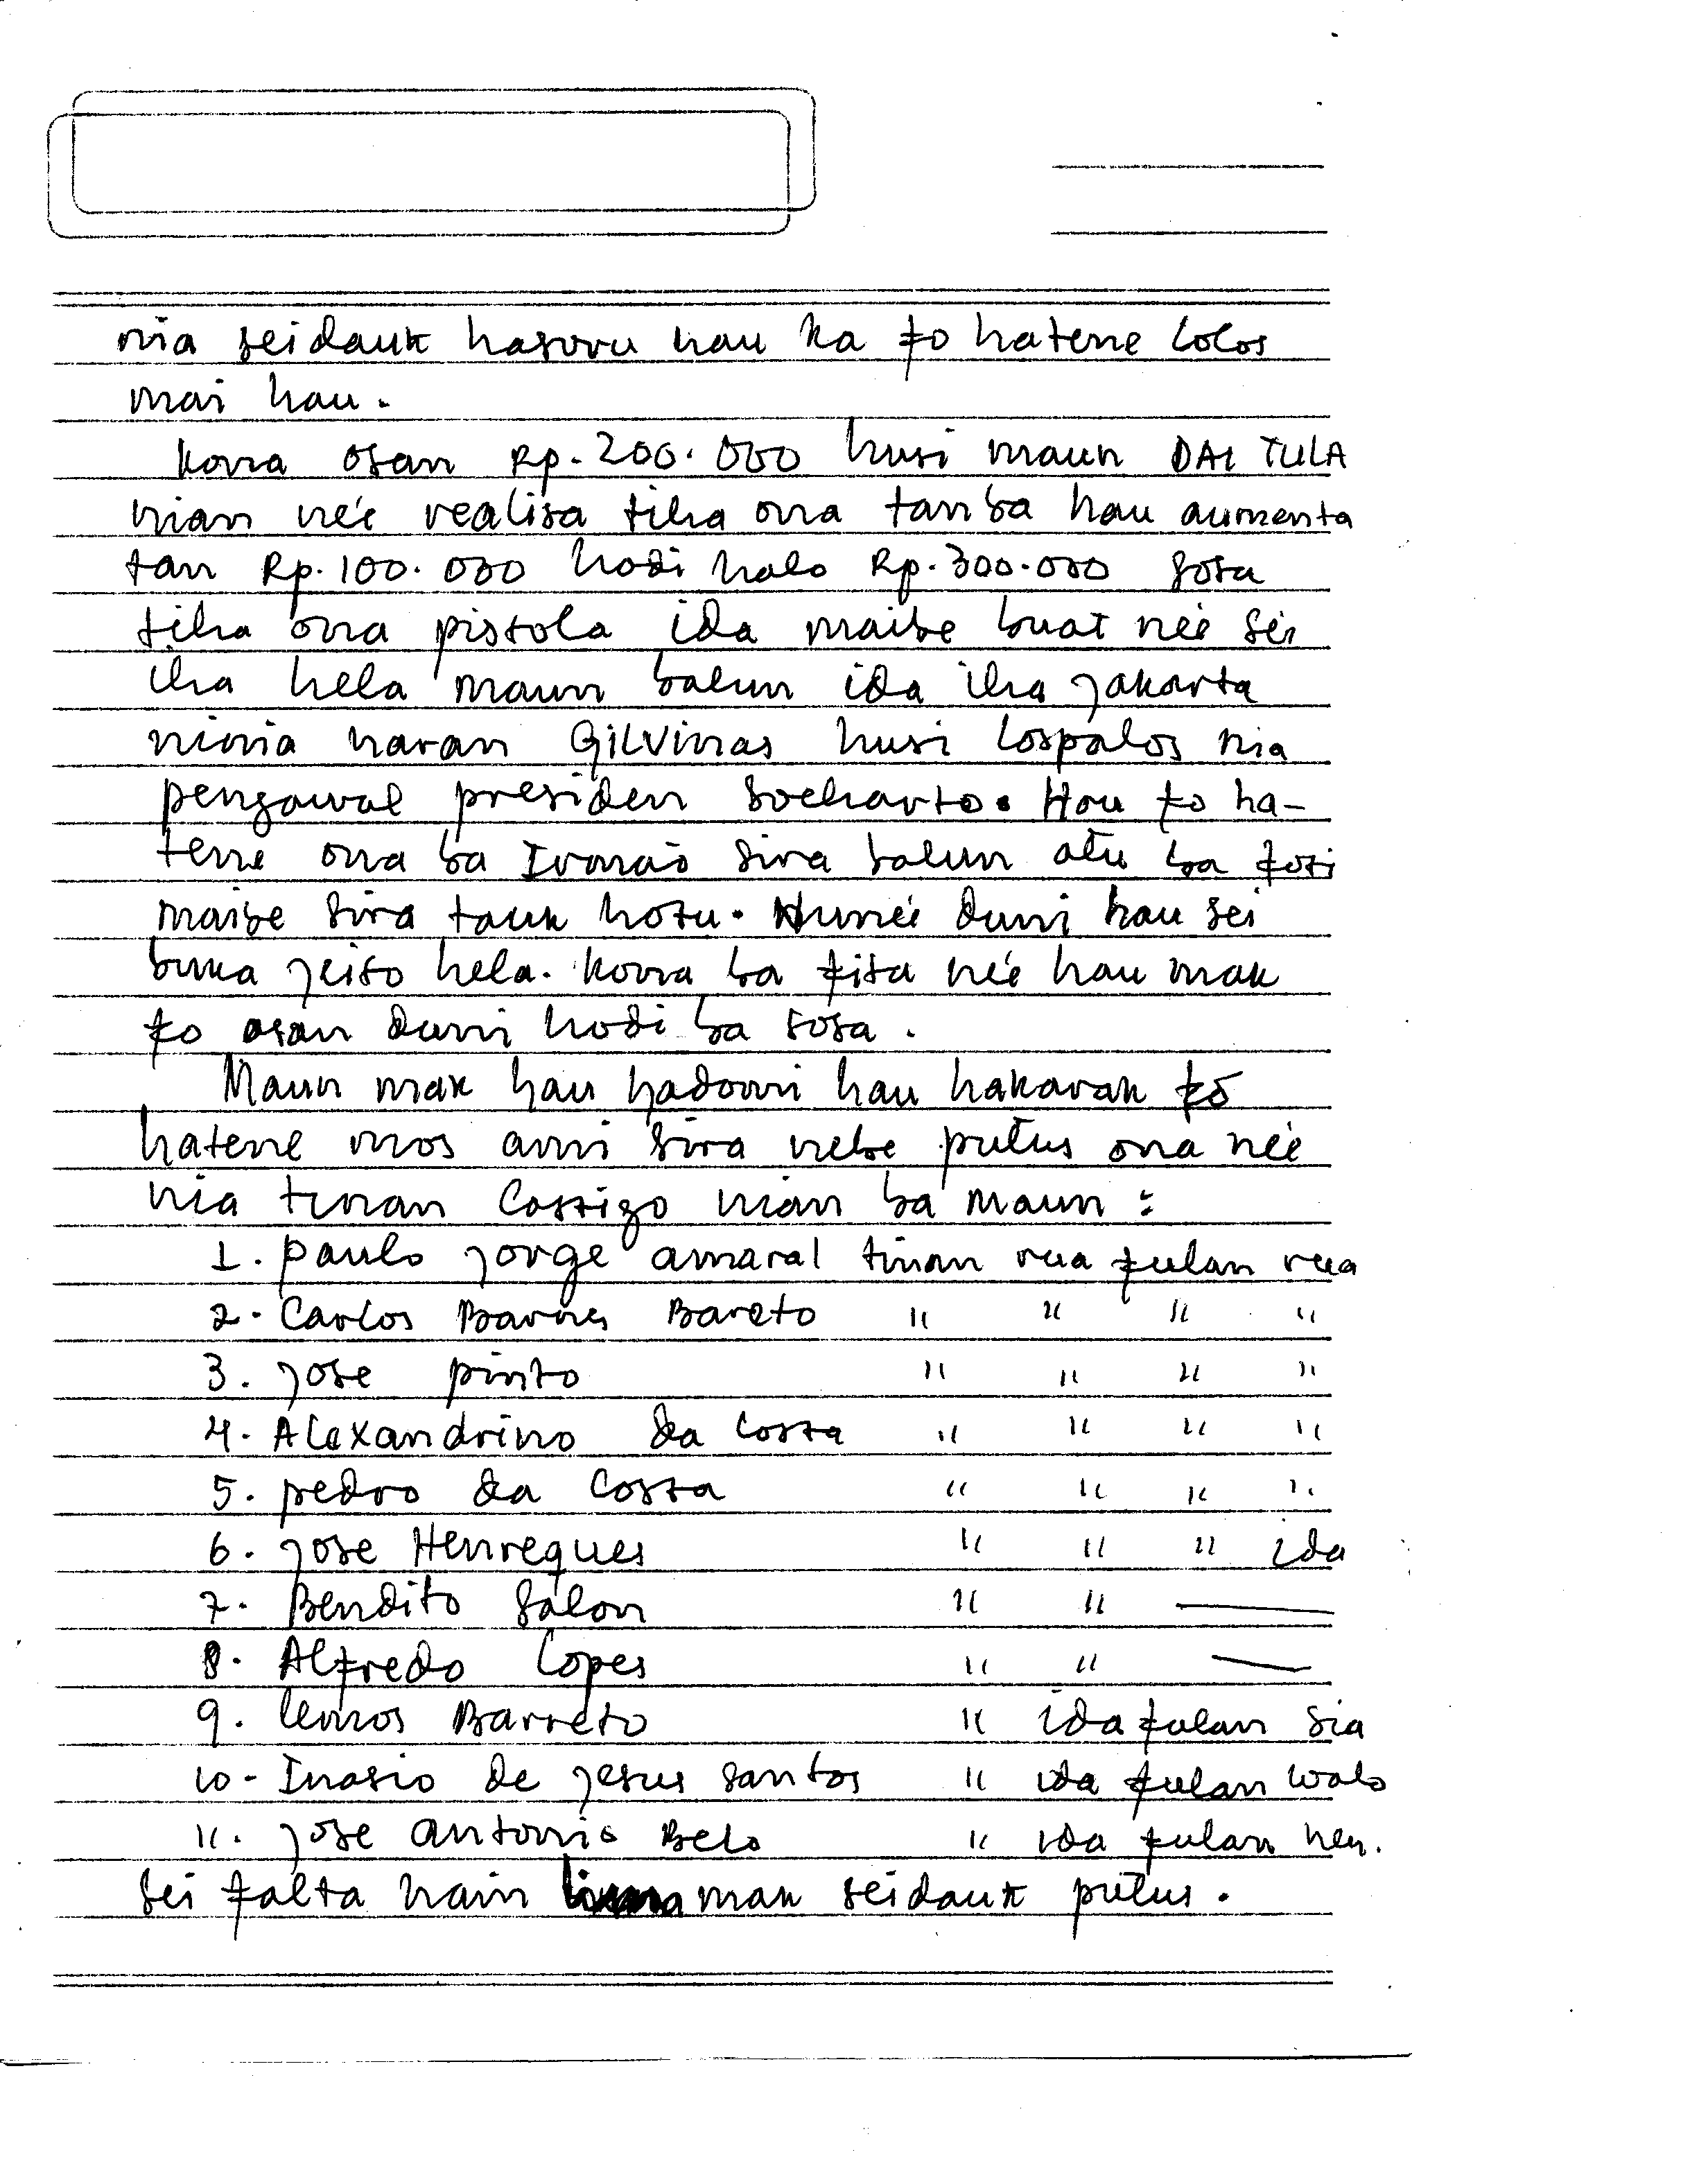 nia seidauk hasoru hau ka fo hatene lolos
mai hau.
kona osan Rp. 200.000 husi maun DAI TULA
nian neé realisa tiha ona tanba hau aumenta
tan Rp. 100.000 hodi halo Rp. 300.000 sosa
tiha ona pistola ida maibe buat neé sei
iha hela maun balun ida iha Jakarta
ninia naran Gilvinas husi Lospalos nia
pengawal presiden Soeharto. Hau fo ha-
tene ona ba Irmaõ sira balun atu ba foti
maibe sira tauk hotu. Huneé duni hau sei
buka jeito hela. kona ba fita neé hau mak
fo osan duni hodi ba sosa.
Maun mak hau hadomi hau hakarak fo
hatene mos ami sira nebe putus ona neé
nia tinan Castigo nian ba maun :
1. paulo jorge amaral tinan rua fulan rua
2. Carlos Barros Bareto " " " "
3. jose pinto " " " "
4. Alexandrino da Costa " " " "
5. pedro da Costa " " " "
6. jose Henreques " " " ida
7. Bendito Salon " " —
8. Alfredo Lopes " " —
9. lemos Barreto " ida fulan sia
10- Inasio de jesus santos " ida fulan walo
11. jose antonio Belo " ida fulan nen.
sei falta hain mak seidauk putus.